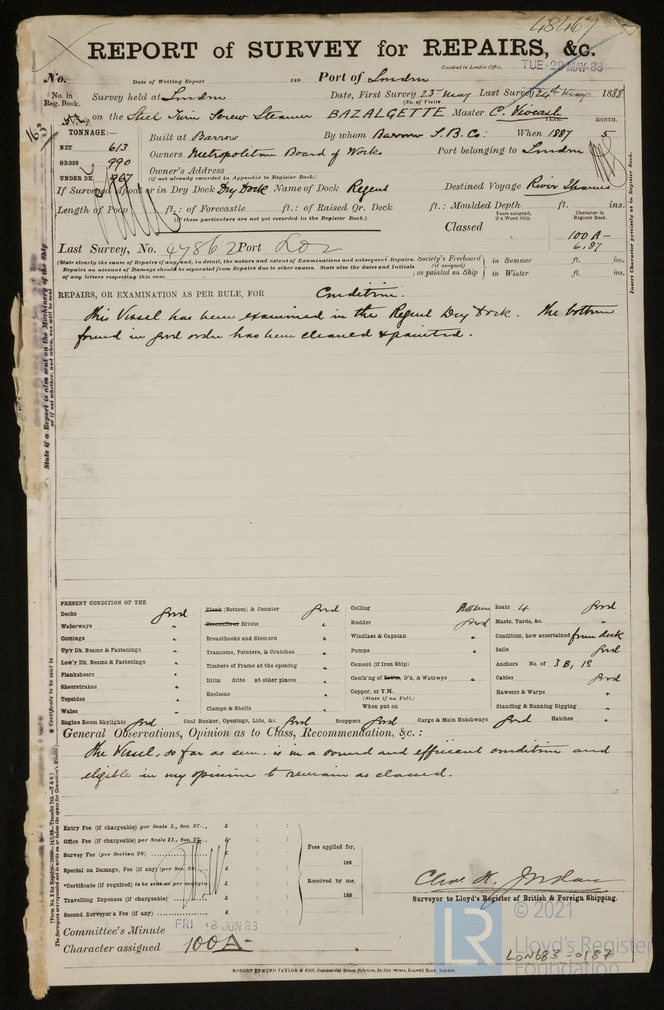 48467
REPORT of SURVEY for REPAIRS, &c.
Received in London Office, TUE-29 MAY-88
No. Date of Writing Report 188 Port of London
No. in Reg. Book. Survey held at London Date, First Survey 23rd May Last Survey 24th May 1888
(No. of Visits)
on the Steel Twin Screw Steamer BAZALGETTE Master C. Viveash
163
TONNAGE:— YEAR. MONTH.
NET 613 Built at Barrow By whom Barrow S. B. Co: When 1887 5
GROSS 990 Owners Metropolitan Board of Works Port belonging to London
UNDER DK. 967 Owner's Address
(if not already recorded in Appendix to Register Book.)
If Surveyed Afloat or in Dry Dock Dry Dock Name of Dock Regent Destined Voyage River Thames
Length of Poop ft.: of Forecastle ft.: of Raised Qr. Deck ft.: Moulded Depth ft. ins.
(if these particulars are not yet recorded in the Register Book.)
Years assigned, if a Wood Ship. Character in Register Book.
Classed 100 A-
6,87
Last Survey, No. 47862 Port Lon
(State clearly the cause of Repairs if any, and, in detail, the nature and extent of Examinations and subsequent Repairs.
Repairs on account of Damage should be separated from Repairs due to other causes. State also the dates and Initials
of any letters respecting this case.
Society's Freeboard (if assigned) as painted on Ship in Summer ft. ins.
in Winter ft. ins.
REPAIRS, OR EXAMINATION AS PER RULE, FOR Condition.
This Vessel has been examined in the Regent Dry Dock. The bottom
found in good order has been cleaned & painted.
Insert Character precisely as in Register Book.
State if a Report is also sent on the Machinery of the Ship
or if not whether, and when, one will be sent
PRESENT CONDITION OF THE
Decks good Plank (Bottom) & Counter good Ceiling Boats 4 good
Waterways " Treenails or Rivets " Rudder good Masts, Yards, &c. "
Comings " Breasthooks and Stemson " Windlass & Capstan " Condition, how ascertained from deck
Up'r Dk. Beams & Fastenings " Transoms, Pointers, & Crutches " Pumps " Sails good
Low'r Dk. Beams & Fastenings " Timbers of Frame at the opening Cement (if Iron Ship) " Anchors No. of 3 B, 1S
Plankshears " Ditto ditto at other places " Caulk'ng of Bottm, D'k, & Watrwys " Cables good
Sheerstrakes " Keelsons " Copper, or Y.M. Hawsers & Warps "
Topsides " Clamps & Shelfs " (State if on Felt.) Standing & Running Rigging "
Wales " When put on
Engine Room Skylights good Coal Bunker, Openings, Lids, &c. good Scuppers good Cargo & Main Hatchways good Hatches "
General Observations, Opinion as to Class, Recommendation, &c.:
The Vessel, so far as seen, is in a sound and efficient condition and
eligible in my opinion to remain as classed.
Entry Fee (if chargeable) per Scale I., Sec. 27... £
Office Fee (if chargeable) per Scale II., Sec. 27... £
Fees applied for,
Survey Fee (per Section 28) £
188
Special on Damage, Fee (if any) (per Sec. 28) £
Received by me,
*Certificate (if required) to be sent as per margin £
188
Travelling Expenses (if chargeable) £
Second Surveyor's Fee (if any) £
Chas. H. Jordan
Surveyor to Lloyd's Register of British & Foreign Shipping.
Committee's Minute FRI 8 JUN 88
Character assigned 100 A-
© 2021
LR
Lloyd's Register
Foundation
LON683-0187
ROBERT EDMUND TAYLOR & SON, Commercial Steam Printers, 19, Old Street, Goswell Road, London.
* Certificate to be sent to